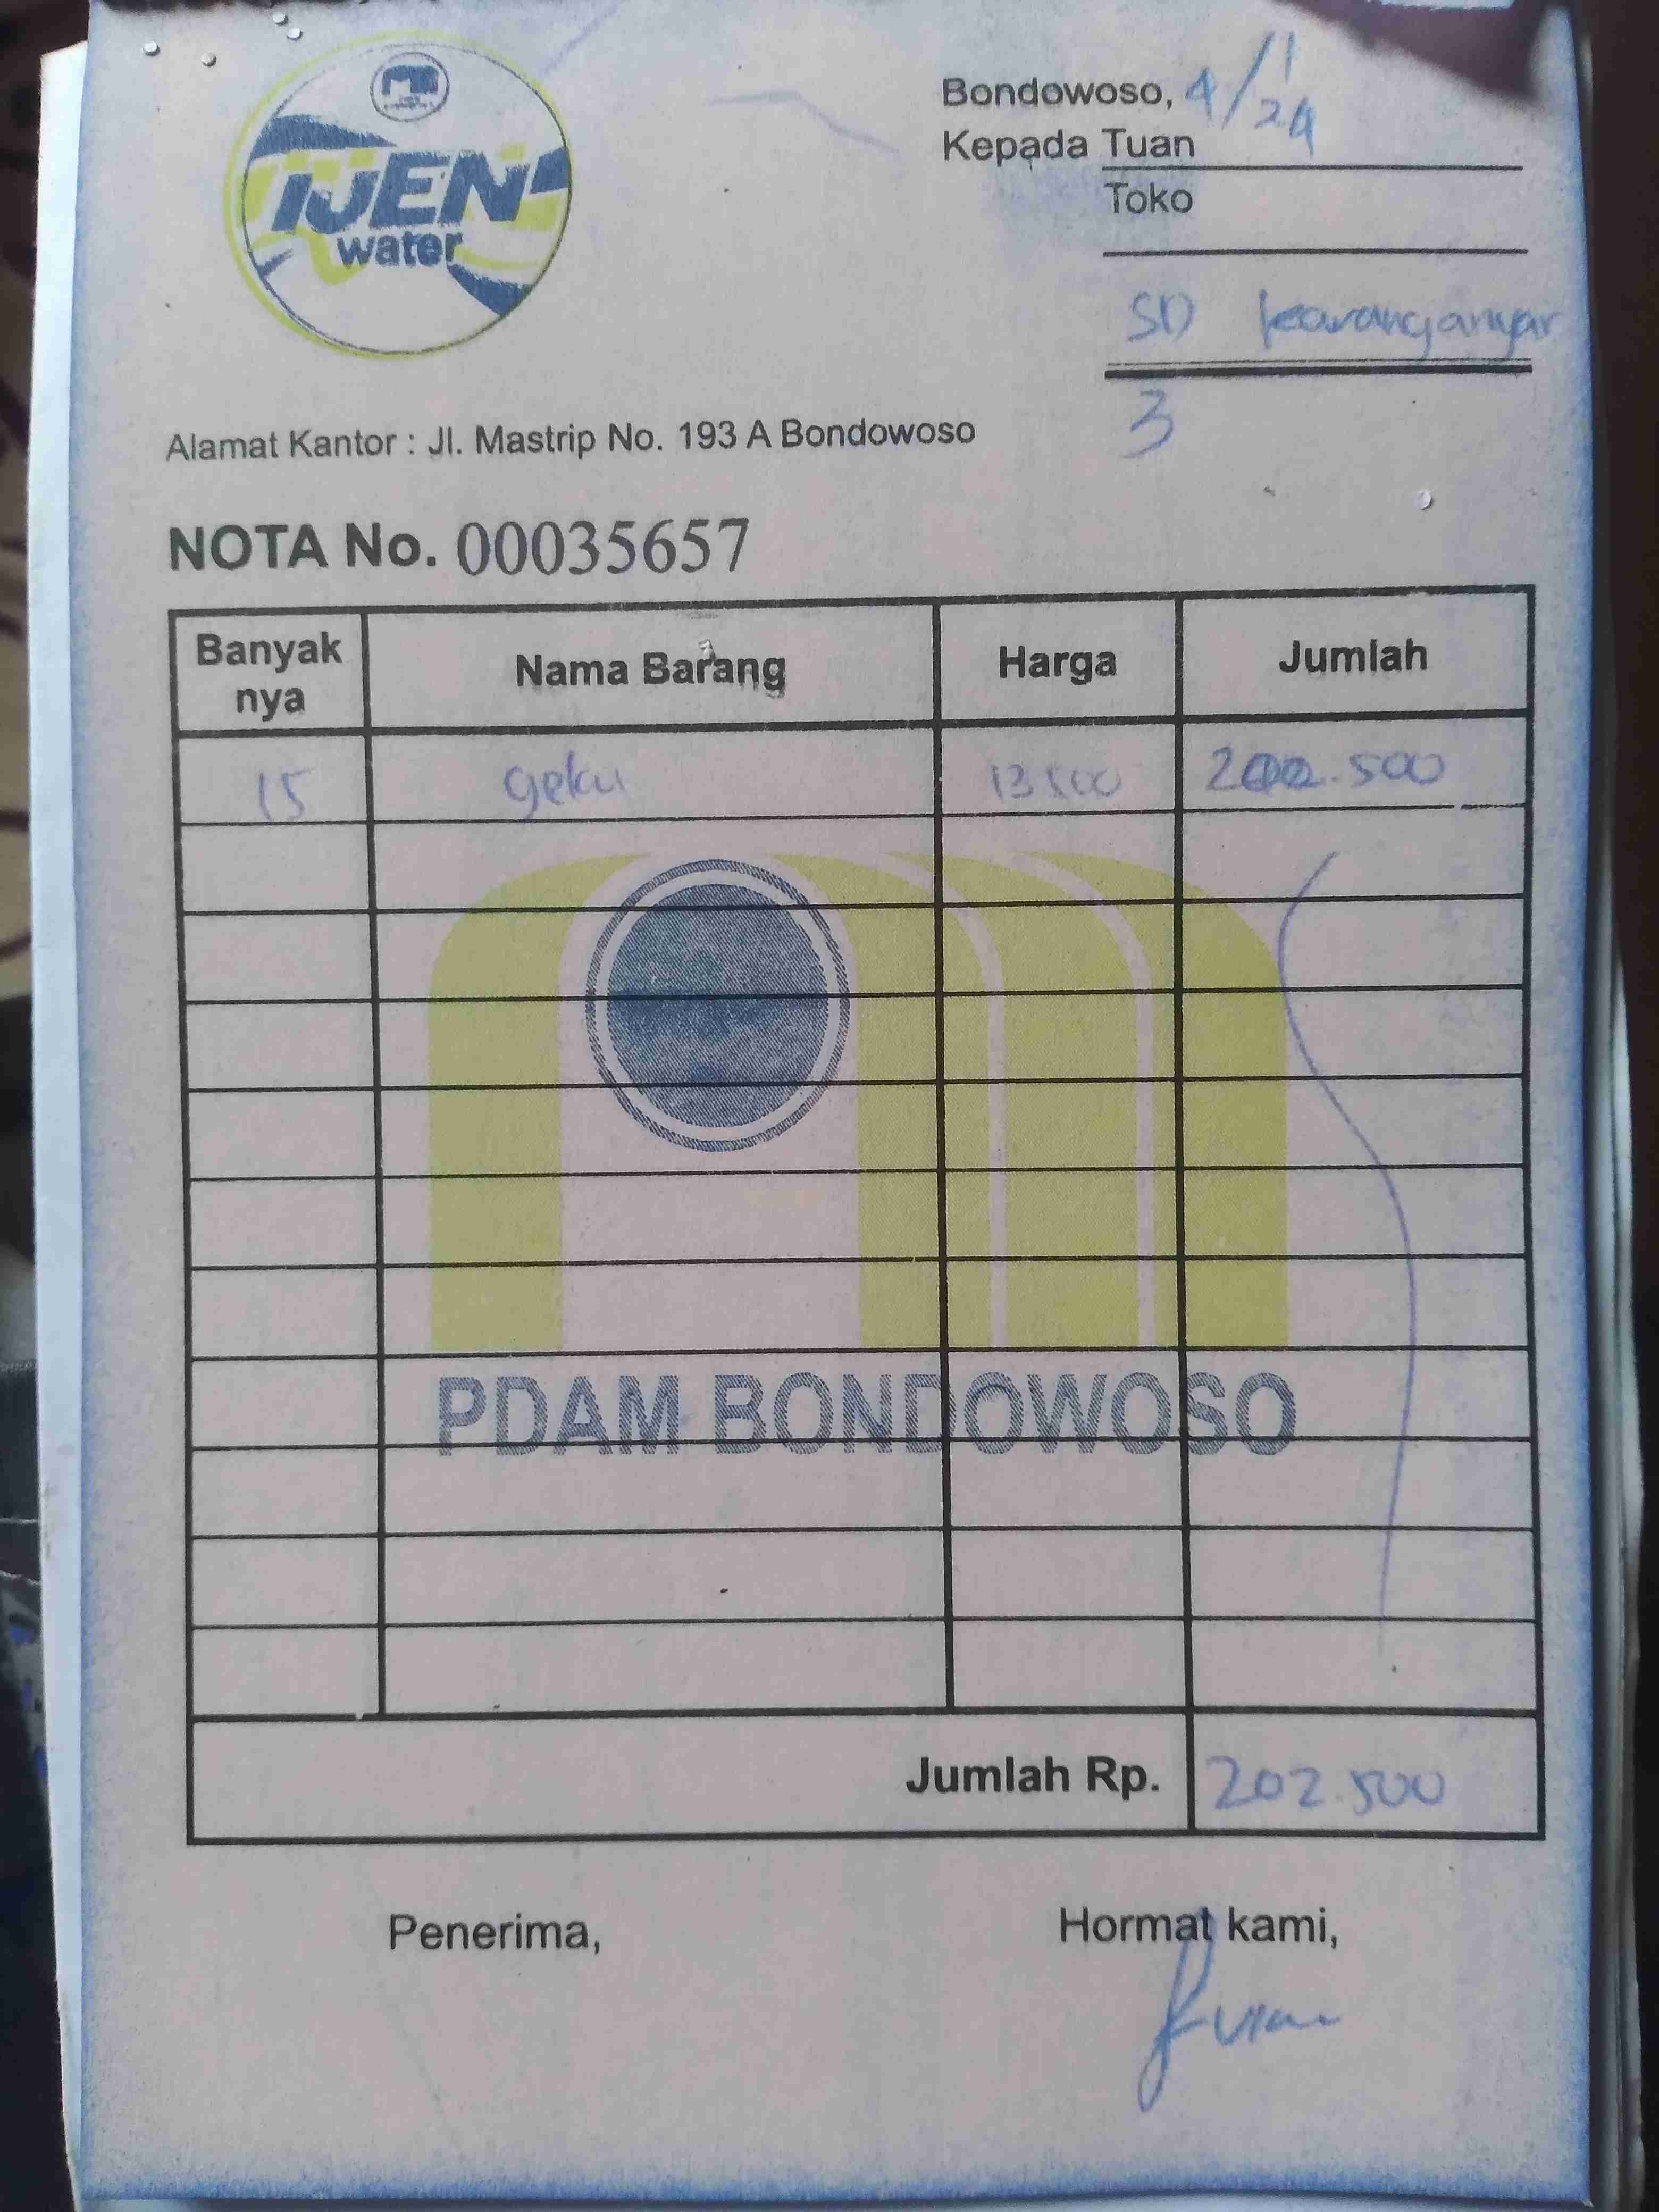 IJEN
water
Bondowoso, 4/1/24
Kepada Tuan
Toko
SD karanganyar
3
Alamat Kantor : Jl. Mastrip No. 193 A Bondowoso
NOTA No. 00035657
Banyak nya Nama Barang Harga Jumlah
15 13.500 202.500
PDAM BONDOWOSO
Jumlah Rp. 202.500
Penerima, Hormat kami,